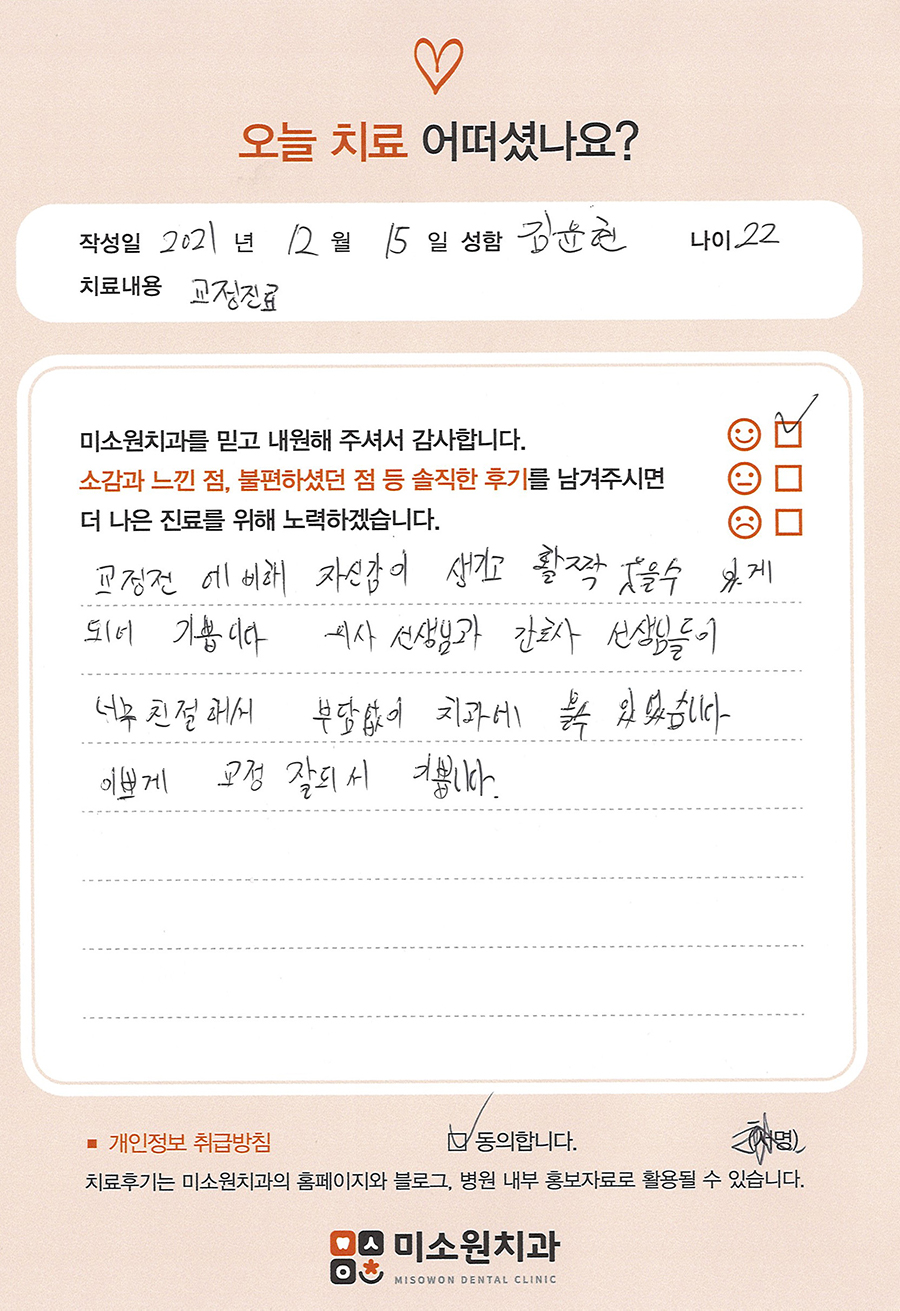 오늘 치료 어떠셨나요?
작성일 2021 년 12 월 15 일 성함 김윤현 나이 22
치료내용 교정진료
미소원치과를 믿고 내원해 주셔서 감사합니다.
소감과 느낀 점, 불편하셨던 점 등 솔직한 후기를 남겨주시면
더 나은 진료를 위해 노력하겠습니다.
교정전 에 비해 자신감이 생기고 활짝 웃을수 있게
되니 기쁩니다 의사 선생님과 간호사 선생님들이
너무 친절해서 부담없이 치과에 올수 있었습니다
이쁘게 교정 잘되서 기쁩니다.
■ 개인정보 취급방침 동의합니다. (서명)
치료후기는 미소원치과의 홈페이지와 블로그, 병원 내부 홍보자료로 활용될 수 있습니다.
미소원치과
MISOWON DENTAL CLINIC